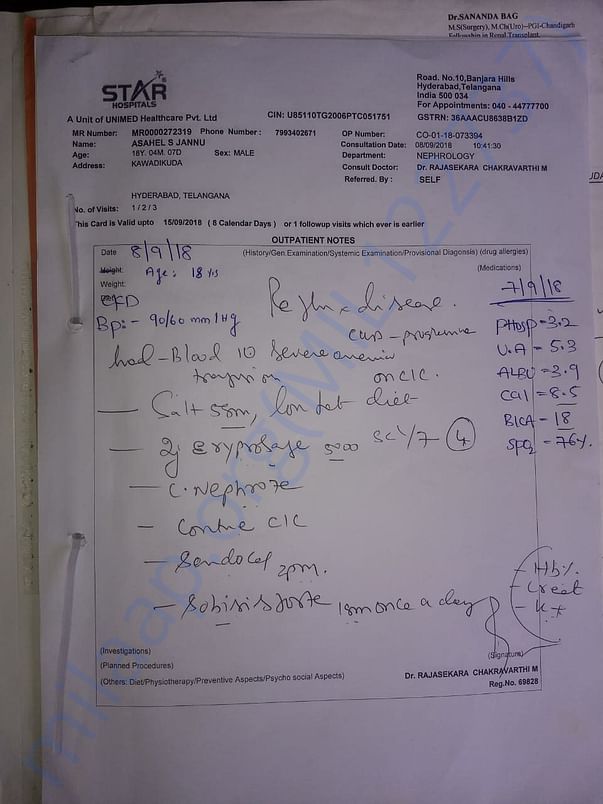 Dr.SANANDA BAG
M.S(Surgery), M.Ch(Uro)--PGI-Chandigarh
Fellowship in Renal Transplant
STAR
HOSPITALS
Road. No.10,Banjara Hills
Hyderabad,Telangana
India 500 034
For Appointments: 040 - 44777700
A Unit of UNIMED Healthcare Pvt. Ltd
CIN: U85110TG2006PTC051751
GSTRN: 36AAACU8638B1ZD
MR Number: MR0000272319 Phone Number: 7993402671 OP Number: CO-01-18-073394
Name: ASAHEL S JANNU Consultation Date: 08/09/2018 10:41:30
Age: 18Y. 04M. 07D Sex: MALE Department: NEPHROLOGY
Address: KAWADIKUDA Consult Doctor: Dr. RAJASEKARA CHAKRAVARTHI M
Referred By: SELF
HYDERABAD, TELANGANA
No. of Visits: 1 / 2 / 3
This Card is Valid upto 15/09/2018 ( 8 Calendar Days ) or 1 followup visits which ever is earlier
OUTPATIENT NOTES
Date 8/9/18 (History/Gen.Examination/Systemic Examination/Provisional Diagonsis) (drug allergies)
Height: Age: 18 yrs (Medications)
Weight: 7/9/18
CKD Reflux disease.
Bp:- 90/60 mm/Hg PHosp-3.2
U.A - 5.3
had-Blood severe anemia
on CIC. ALBU-3.9
Cal - 8.5
Salt 5gm, low fat diet
BICA- 18
5000 4
SPO2 -76%
C.Nephroze
CIC
Hb%
Creat
K+
once a day
(Investigations)
(Planned Procedures) (Signature)
(Others: Diet/Physiotherapy/Preventive Aspects/Psycho social Aspects) Dr. RAJASEKARA CHAKRAVARTHI M
Reg.No. 69828